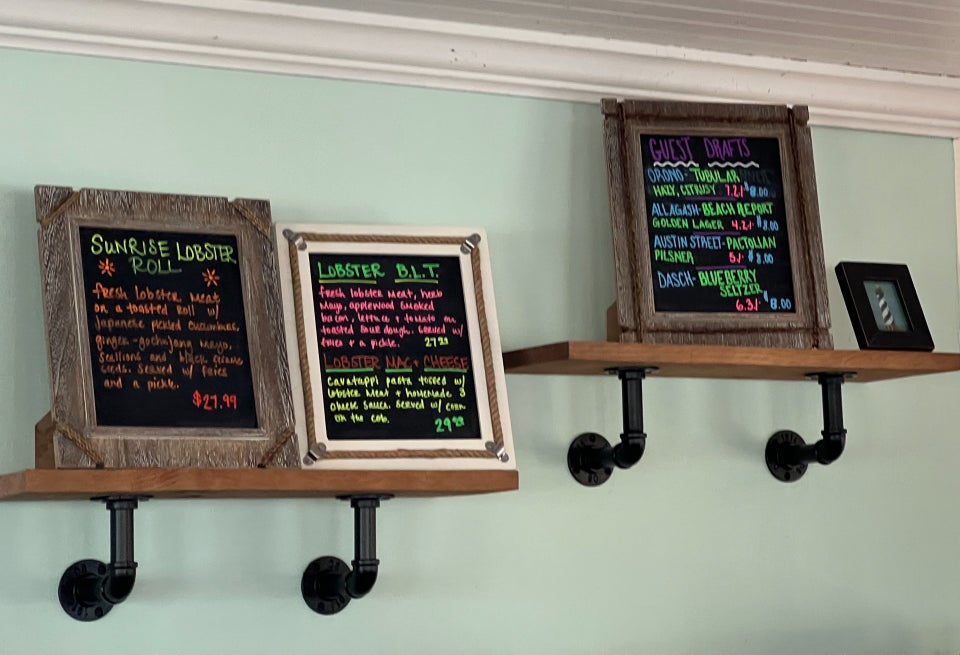 SUNRISE LOBSTER
ROLL
fresh lobster meat
on a toasted roll w/
Japanese pickled cucumbers,
ginger-gochujang mayo,
scallions and black sesame
seeds. Served w/ fries
and a pickle.
$27.99
LOBSTER B.L.T.
fresh lobster meat, herb
mayo, applewood smoked
bacon, lettuce + tomato on
toasted sour dough. Served w/
fries + a pickle. 27.99
LOBSTER MAC + CHEESE
Cavatappi pasta tossed w/
lobster meat + homemade 3
cheese sauce. Served w/ corn
on the cob. 29.99
GUEST DRAFTS
ORONO- TUBULAR
HAZY, CITRUSY 7.2% $8.00
ALLAGASH- BEACH REPORT
GOLDEN LAGER 4.2% $8.00
AUSTIN STREET- PACTOLIAN
PILSNER 5% $8.00
DASCH- BLUEBERRY
SELTZER
6.3% $8.00